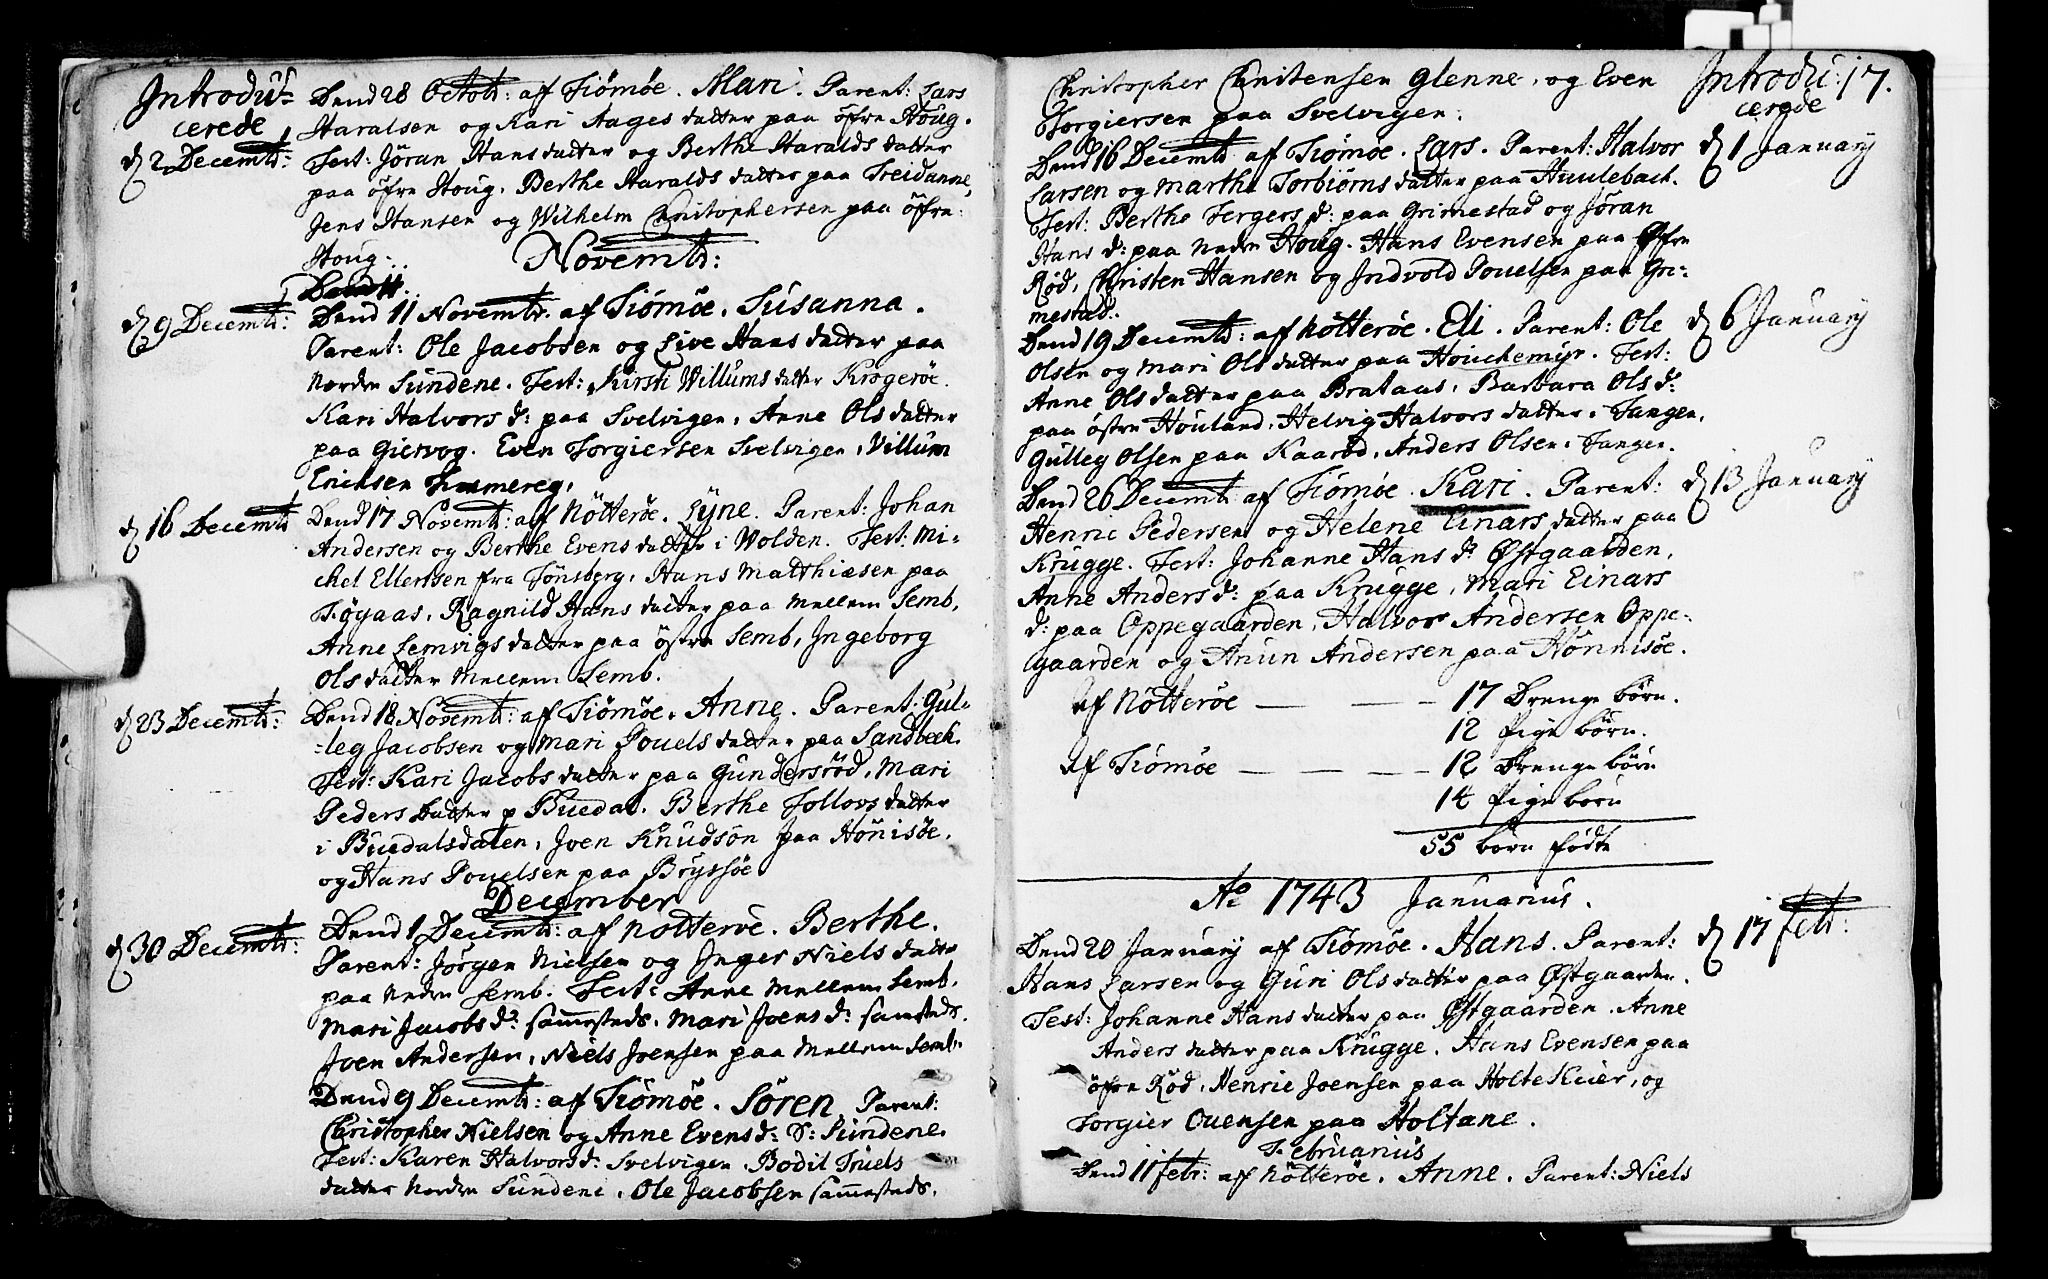 Introdu=
cerede
d 2 Decembr:
Dend 28 Octobr: af Tiömöe. Mari. Parent: Lars
Haralsen og Kari Aages datter paa öfre Houg.
Test: Jöran Hans datter og Berthe Haralds datter
paa öfre Houg. Berthe Haralds datter paa Treidanne,
Jens Hansen og Wilhelm Christophersen paa öfre
Houg.
Novembr:
Dend 11.
d 9 Decembr:
Dend 11 Novembr. af Tiömöe. Susanna.
Parent: Ole Jacobsen og Live Hans datter paa
Nordre Sundene. Test: Kirsti Willums datter Krogeröe.
Kari Halvors d: paa Svelvigen, Anne Ols datter
paa Giervog. Even Torgiersen Svelvigen, Villum
Erichsen
d 16 Decembr
Dend 17 Novembr: af Nötteröe. Lyne. Parent: Johan
Andersen og Berthe Evens datter i Wolden. Test: Mi=
chel Ellertsen fra Tönsberg, Hans Matthiæsen paa
Töyaas, Ragnild Hans datter paa Mellem Semb,
Anne Lemvigs datter paa östre Semb, Ingeborg
Ols datter Mellem Semb.
d 23 Decembr:
Dend 18 Novembr: af Tiömöe. Anne. Parent: Gul=
=leg Jacobsen og Mari Pouels datter paa Sandbech.
Test: Kari Jacobs datter paa Gundersröd, Mari
Peders datter p Buedal. Berthe Follovs datter
i Buedalsdalen, Joen Knudsön paa Hönisöe.
og Hans Pouelsen paa Bryssöe
December
d 30 Decembr:
Dend 1 Decembr: af Nötteröe. Berthe.
Parent: Jörgen Nielsen og Inger Niels datter
paa Nedre Semb. Test: Anne Mellem Semb.
Mari Jacobs d: sammesteds. Mari Joens d: samsteds.
Joen Andersen, Niels Joensen paa Mellem Semb.
Dend 9 Decembr: af Tiömöe. Sören. Parent:
Christopher Nielsen og Anne Evens d: S: Sundene.
Test: Karen Halvors d: Svelvigen. Bodil Truels
datter Nordre Sundene. Ole Jacobsen sammesteds.
Christopher Christensen Glenne, og Even
Torgiersen paa Svelvigen.
Introdu: 17.
cerede
d 1 January
Dend 16 Decembr af Tiömöe. Lars. Parent: Halvor
Larsen og Marthe Torbiörns datter paa Huulebach.
Test: Berthe Jergers d: paa Grimestad og Jöran
Hans d: paa Nedre Houg. Hans Evensen paa Öfre
Röd, Christen Hansen og Indvold Pouelsen paa Gri=
mestad.
d 6 January
Dend 19 Decembr: af Nötteröe. Eli. Parent: Ole
Olsen og Mari Ols datter paa Houchemyr. Test:
Anne Ols datter paa Brataas, Barbara Ols d:
paa östre Houland, Helvig Halvors datter. Tangen,
Gulleg Olsen paa Kaaröd, Anders Olsen. Tangen.
d 13 January
Dend 26 Decembr af Tiömöe. Kari. Parent:
Henric Pedersen og Helene Einars datter paa
Krugge. Test: Johanne Hans d: Østgaarden,
Anne Anders d: paa Krugge, Mari Einars
d: paa Oppegaarden, Halvor Andersen Oppe=
gaarden og Anun Andersen paa Hönnisöe.
Af Nötteröe — — — 17 Drenge börn.
12 Pige börn.
Af Tiömöe — — — 12 Drenge börn
14 Pige börn
55 börn fødte
Ao 1743 Januarius.
d 17 febr:
Dend 20 January af Tiömöe. Hans. Parent:
Hans Larsen og Guri Ols datter paa Østgaarden.
Test: Johanne Hans datter paa Østgaarden. Anne
Anders datter paa Krugge. Hans Evensen paa
öfre Röd, Henric Joensen paa Holte Kiær, og
Torgier Ouensen paa Holtane.
Februarius
Dend 11 febr: af Nötteröe. Anne. Parent: Niels